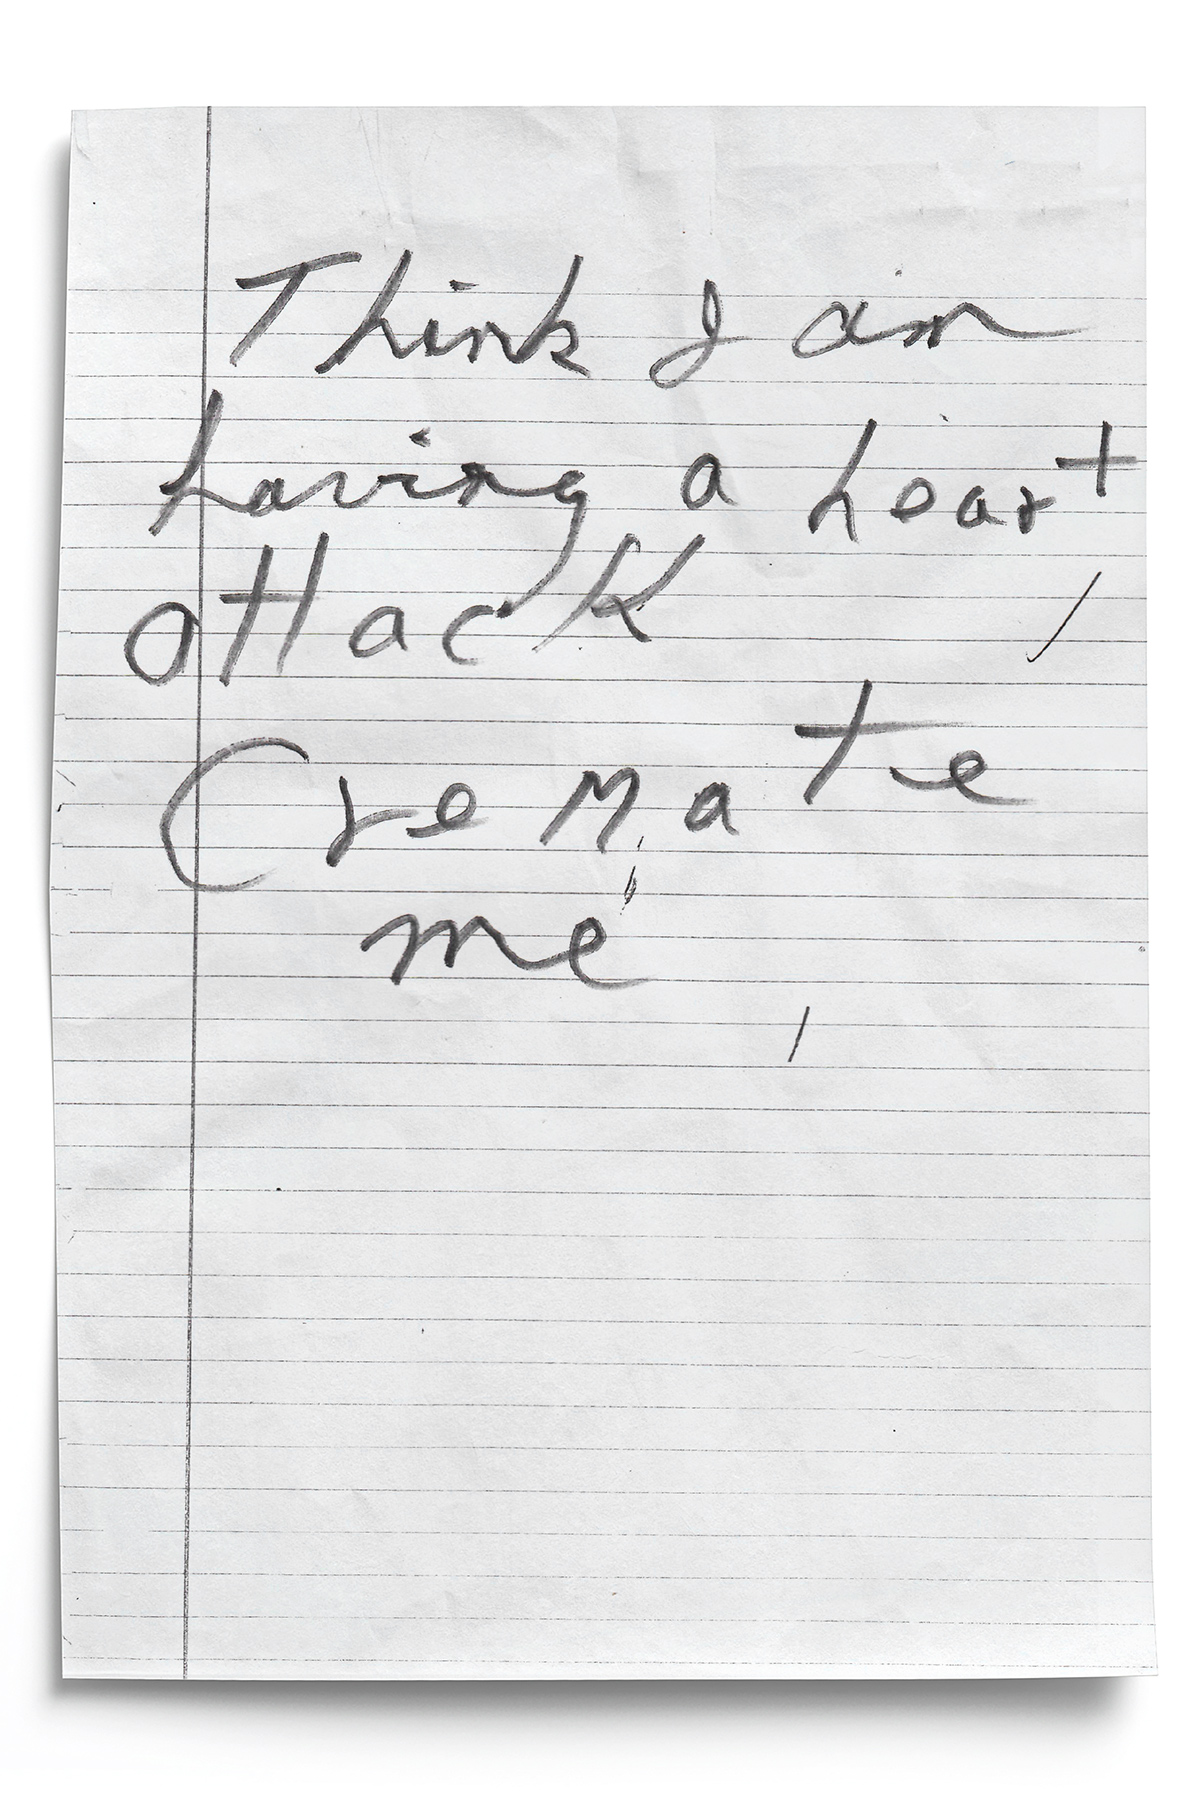 Think I am
having a heart
attack
Cremate
me